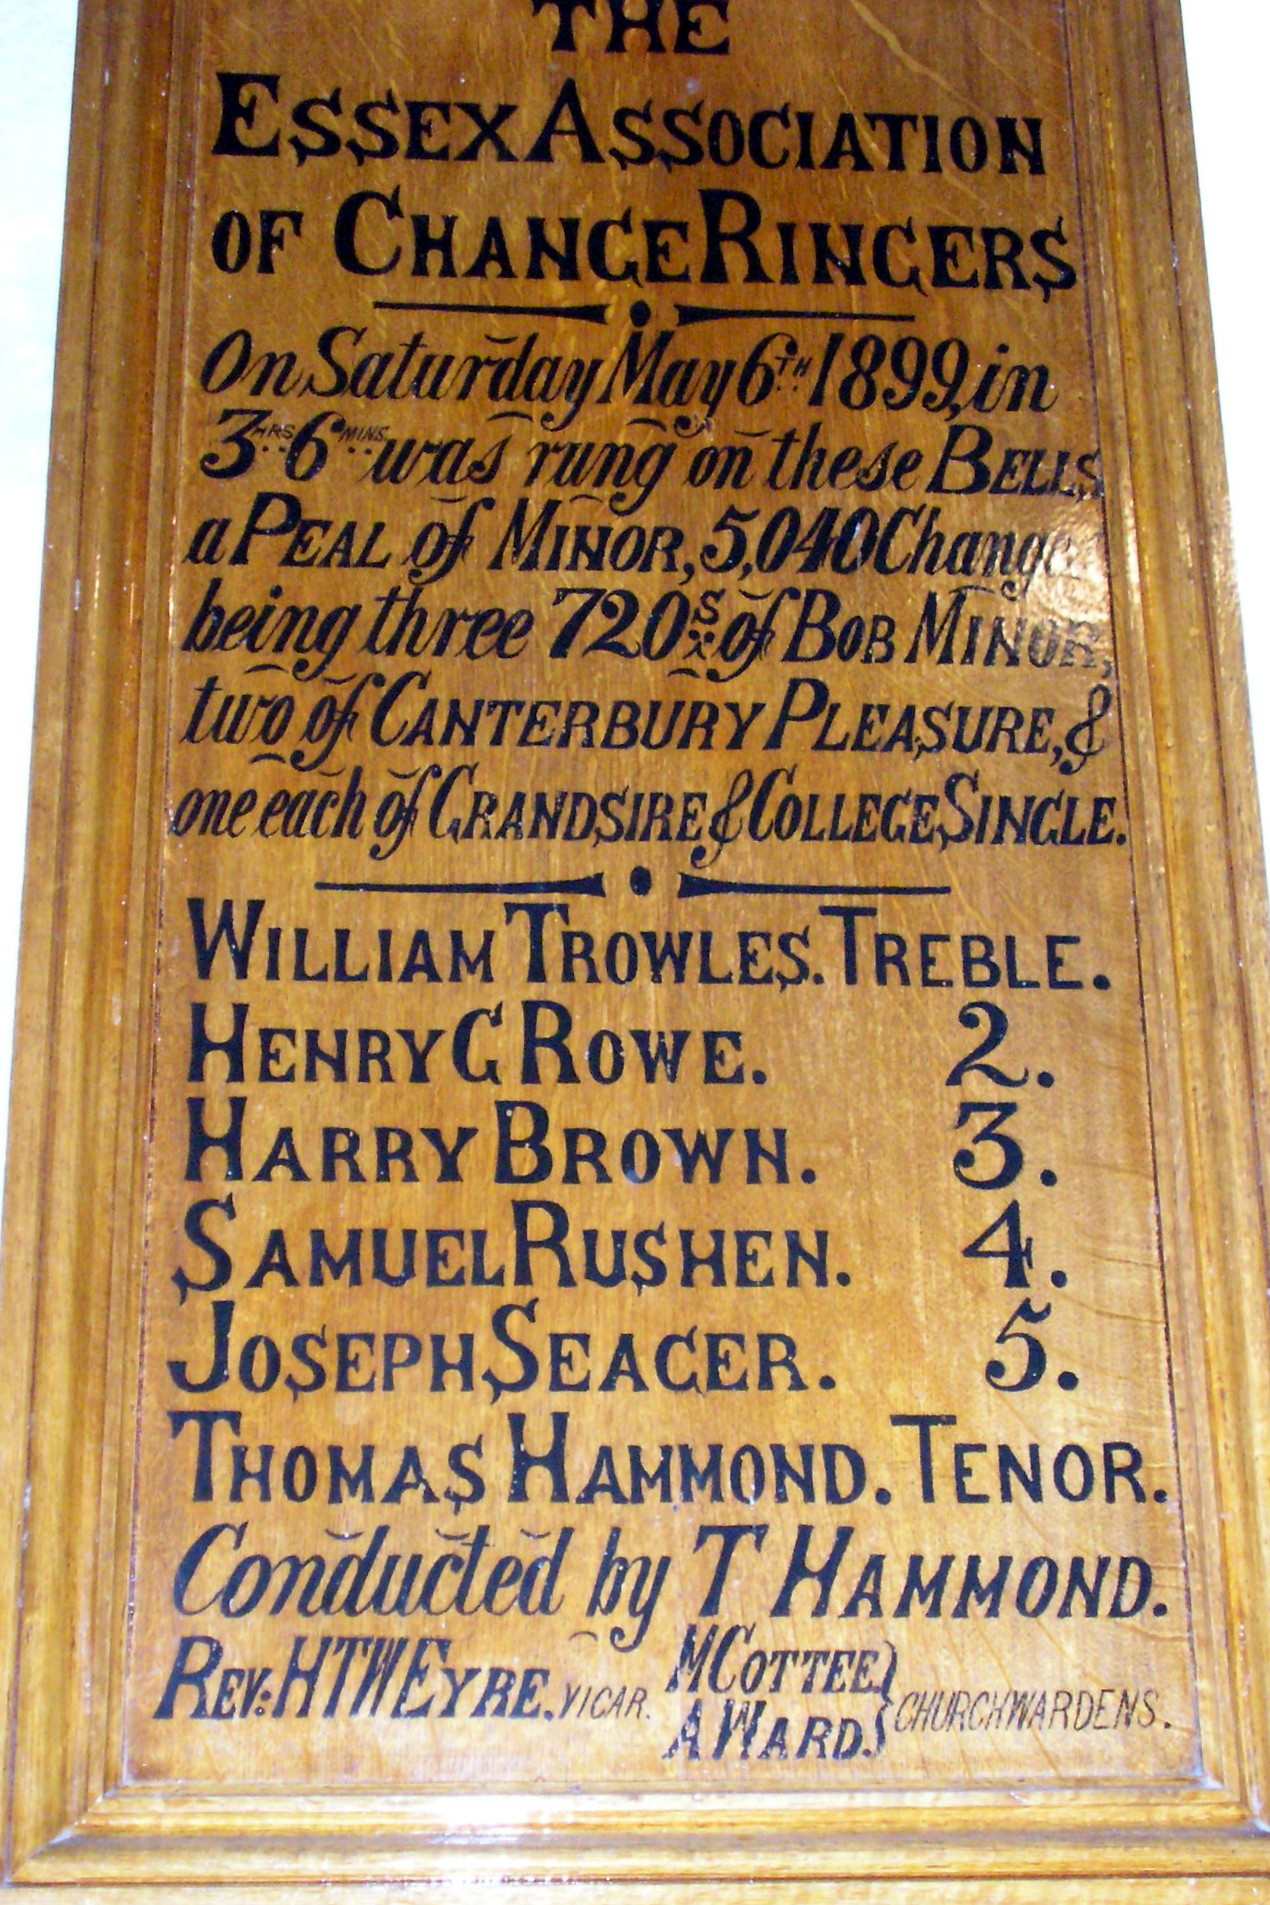 THE
ESSEX ASSOCIATION
OF CHANGE RINGERS
On Saturday May 6TH 1899, in
3HRS 6MINS was rung on these BELLS
a PEAL of MINOR, 5,040 Changes
being three 720s of BOB MINOR,
two of CANTERBURY PLEASURE, &
one each of GRANDSIRE & COLLEGE SINGLE.
WILLIAM TROWLES. TREBLE.
HENRY G ROWE. 2.
HARRY BROWN. 3.
SAMUEL RUSHEN. 4.
JOSEPH SEAGER. 5.
THOMAS HAMMOND. TENOR.
Conducted by T HAMMOND.
REV: H T W EYRE. VICAR. M COTTEE } CHURCHWARDENS.
A WARD.